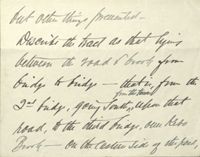 but other things presented —
Describe the tract as that lying
between the road & brook from
bridge to bridge — that is, from the
from the town,
2nd bridge, going South, upon that
road, to the third bridge, over
Brook — on the eastern side of the road,